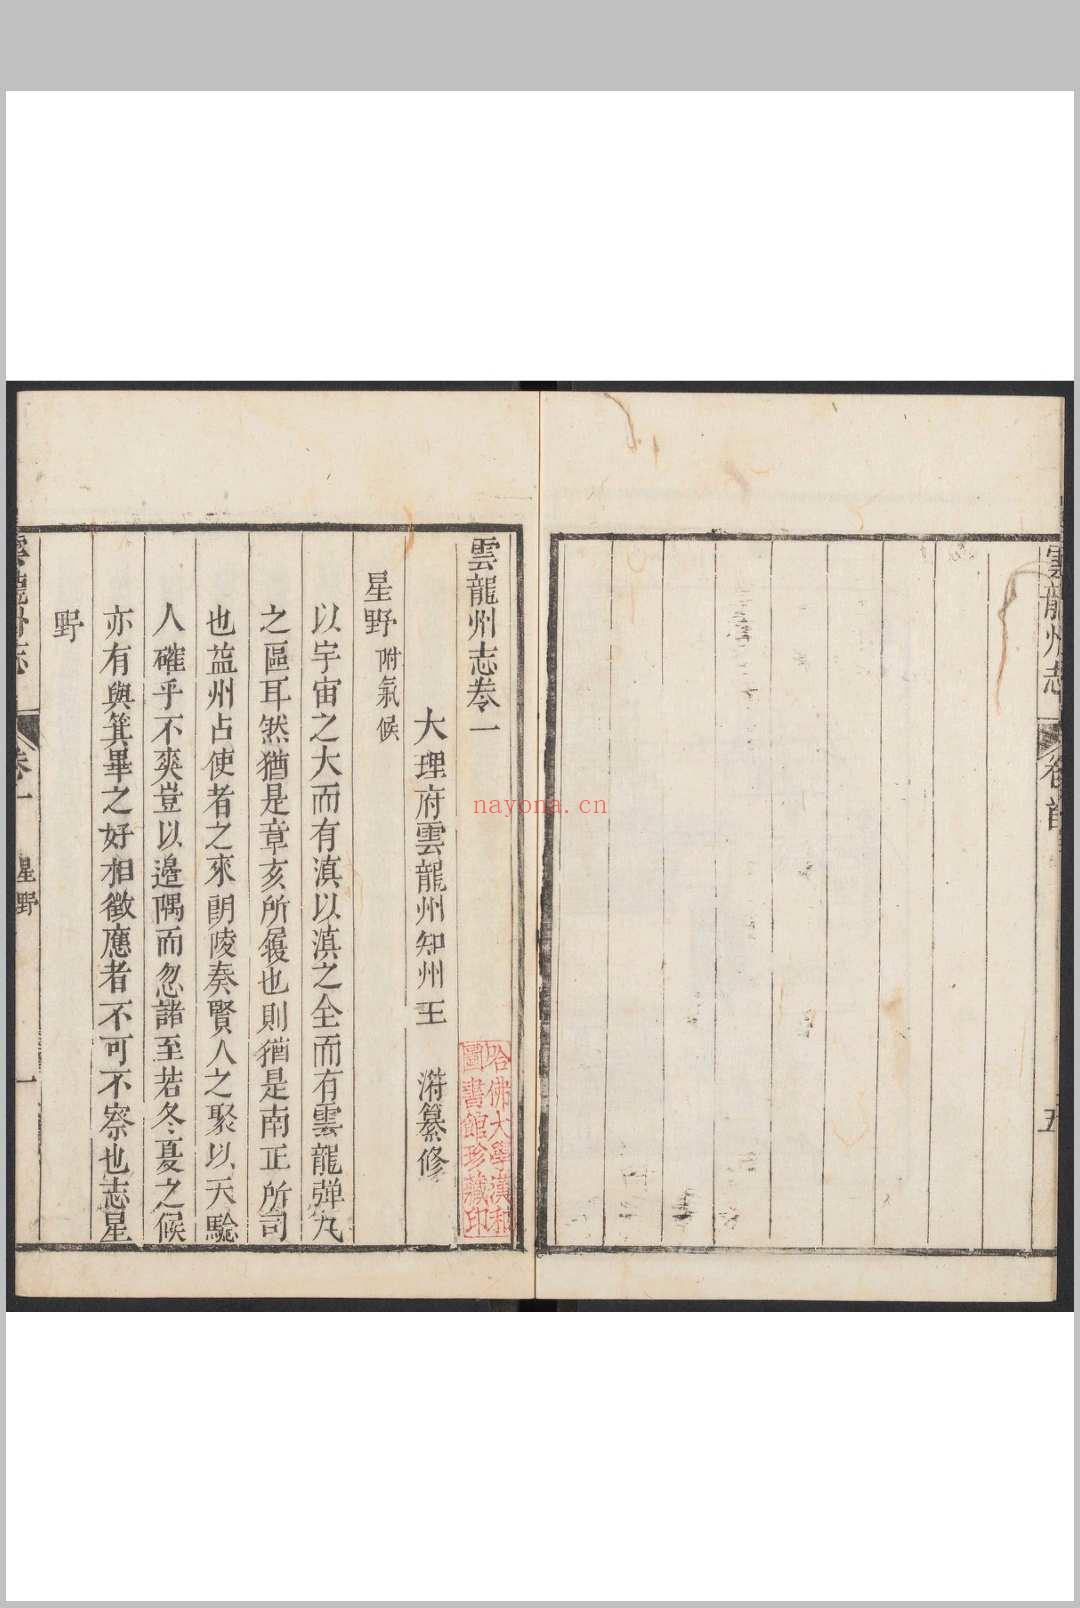 雲龍州志
卷首
五
雲龍州志卷一
大理府雲龍州知州王 㴐纂修
哈佛大學漢和
圖書館珍藏印
星野附氣候
以宇宙之大而有滇以滇之全而有雲龍弹丸
之區耳然猶是章亥所履也則猶是南正所司
也益州占使者之來朗陵奏賢人之聚以天驗
人確乎不爽豈以邉隅而忽諸至若冬夏之候
亦有與箕畢之好相徵應者不可不察也志星
野
雲龍州志
卷一
星野
一
nayona.cn